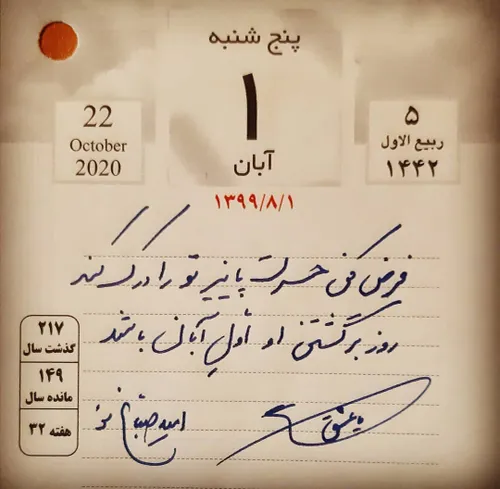 پنج شنبه
۱
آبان
22
October
2020
۵
ربیع الاول
۱۴۴۲
۱۳۹۹/۸/۱
فرض کن حسرت پاییز تو را درک کند
روز برگشتن او اول آبان باشد
امید صباغ نو
۲۱۷
گذشت سال
۱۴۹
مانده سال
هفته ۳۲